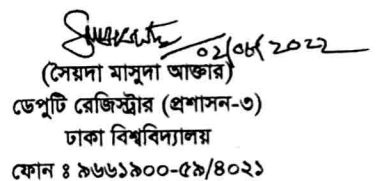 ০২/০৮/২০২২
(সৈয়দা মাসুদা আক্তার)
ডেপুটি রেজিস্ট্রার (প্রশাসন-৩)
ঢাকা বিশ্ববিদ্যালয়
ফোন ঃ ৯৬৬১৯০০-৫৯/৪০২১